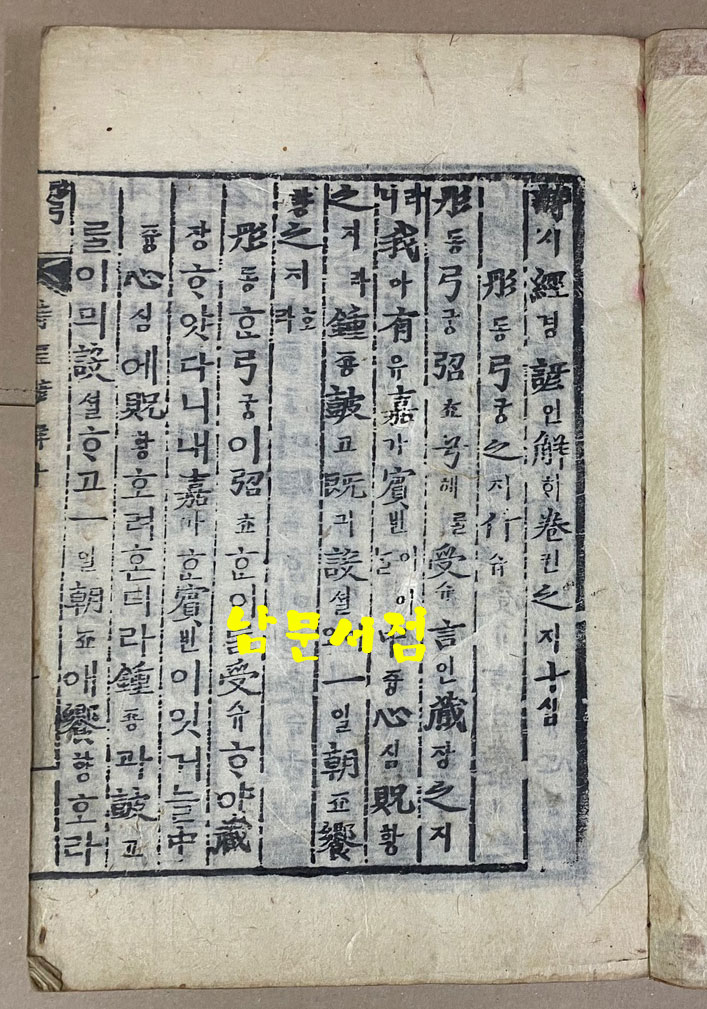 詩시經경諺언解ᄒᆡ卷권之지十십
彤동弓궁之지什슈
彤동弓궁弨쵸兮혜를受슈言언藏장之지
라니我아有유嘉가賓빈이어늘中듕心심貺황
之지라鍾죵鼓고旣긔設셜이오一일朝죠饗
향之지호라
彤동ᄒᆞᆫ弓궁이弨쵸ᄒᆞᆫ이ᄅᆞᆯ受슈ᄒᆞ야藏
장ᄒᆞ얏다니내嘉가ᄒᆞᆫ賓빈이잇거늘中
듕心심에貺황호려ᄒᆞᆫ디라鍾죵과鼓고
ᄅᆞᆯ이믜設셜ᄒᆞ고一일朝죠애饗향호라
詩經諺解十
남문서점